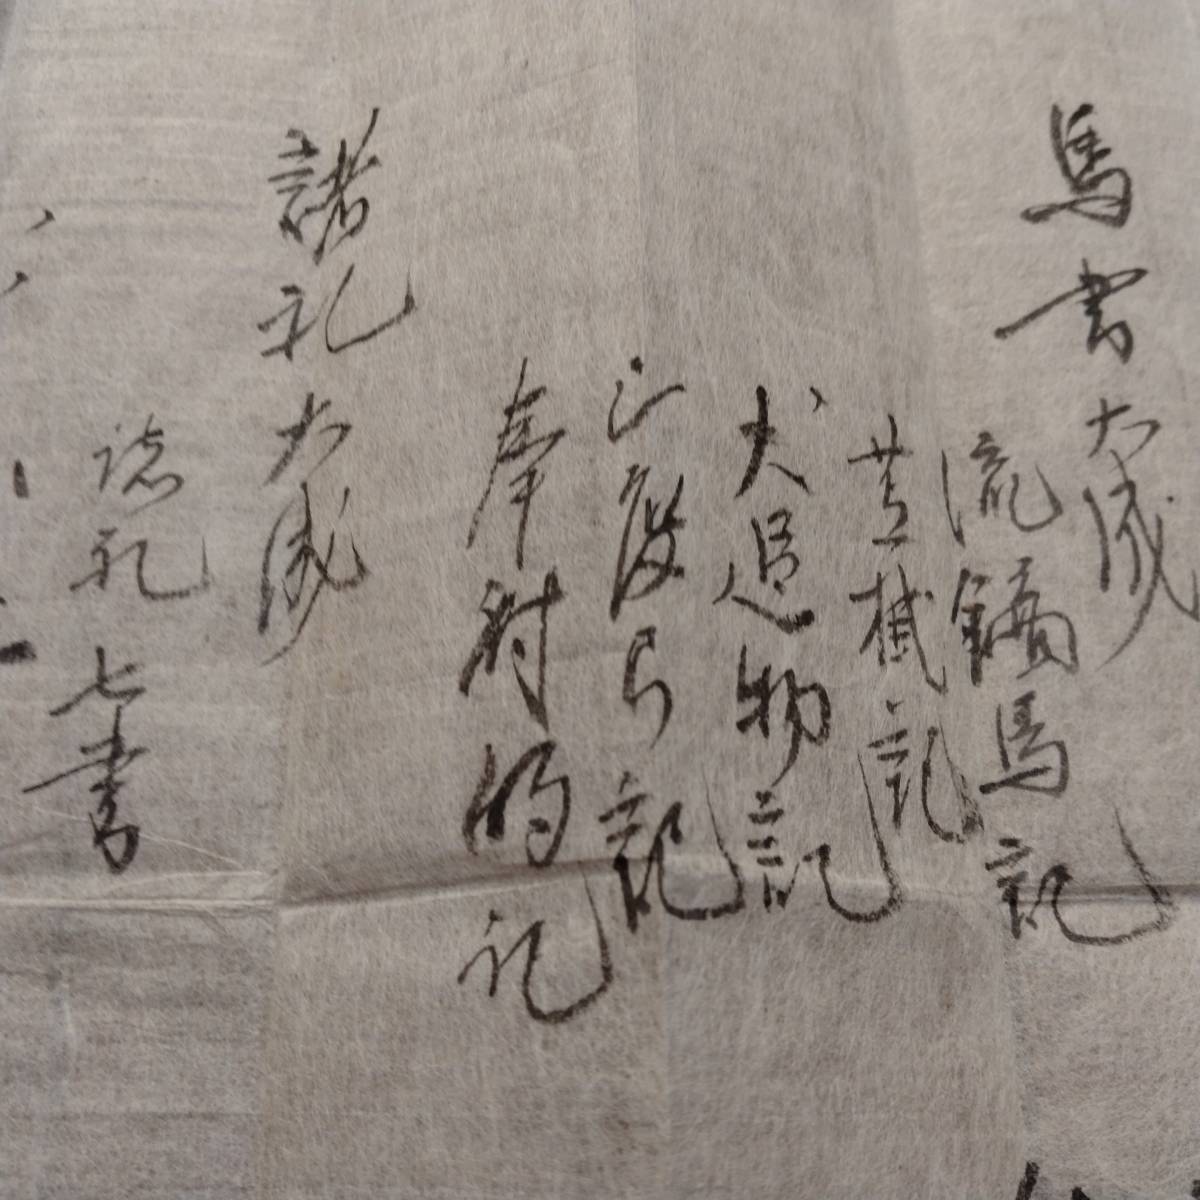 馬書大成
流鏑馬記
記
犬追物記
弓記
奉射的記
諸礼大成
諸礼七書